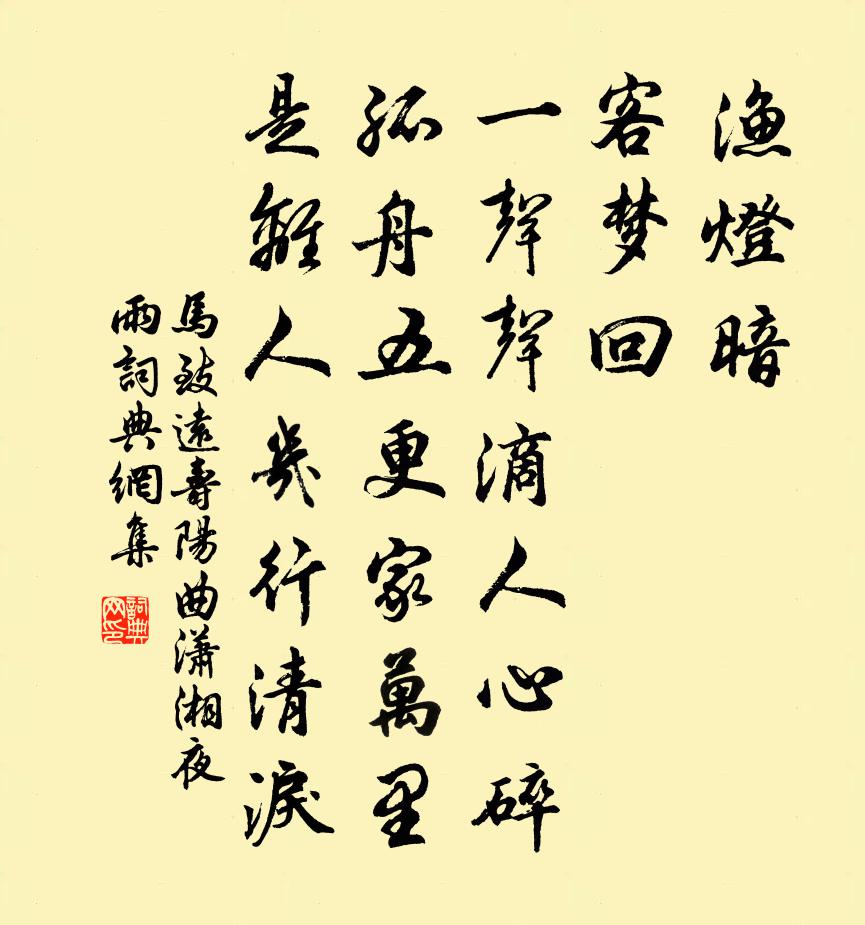 漁燈暗
客梦回
一聲聲滴人心碎
孤舟五更家萬里
是離人幾行清淚
馬致遠壽陽曲瀟湘夜
雨詞典網集
詞典
网印